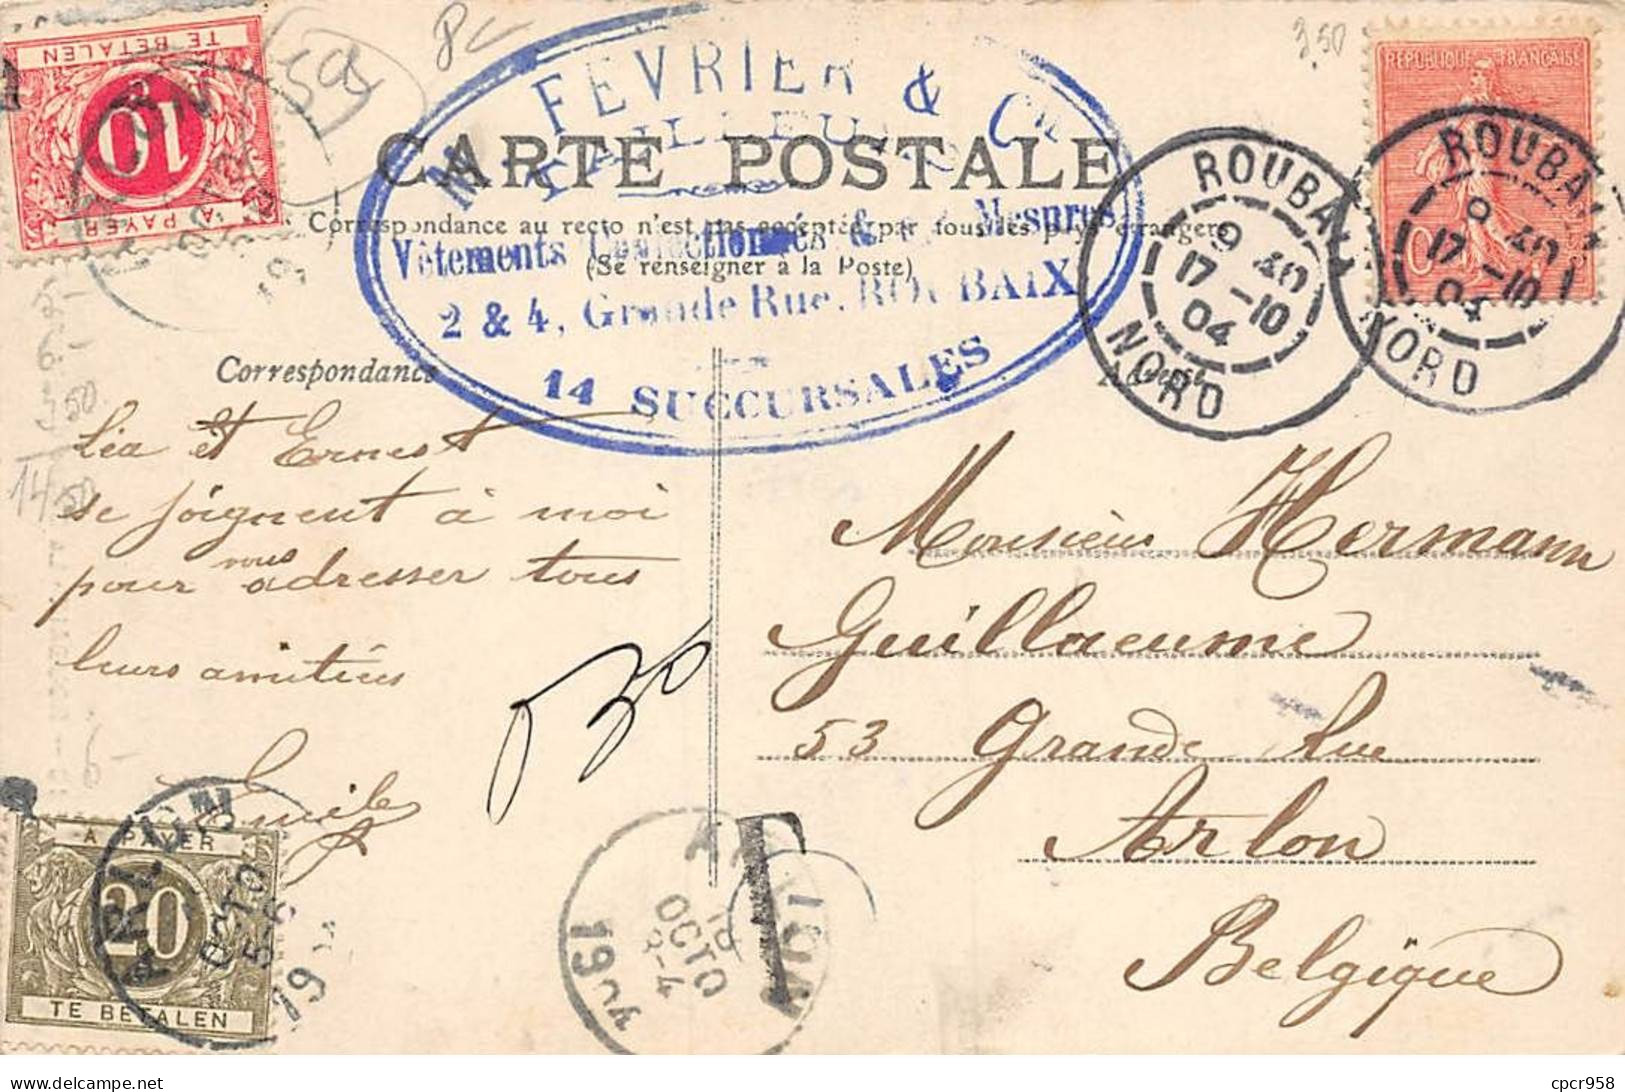 TE BETALEN
10
A PAYER
8c
3,50
REPUBLIQUE FRANÇAISE
M. FEVRIER & Cie
TAILLEUR
CARTE POSTALE
Correspondance au recto n'est pas acceptée par tous les pays étrangers
(Se renseigner à la Poste)
Vêtements Confectionnés & sur Mesures
2 & 4, Grande Rue, ROUBAIX
14 SUCCURSALES
ROUBAIX
9 40
17 -10
04
NORD
ROUBAIX
9 40
17 -10
04
NORD
Correspondance
Léa et Ernest
se joignent à moi
pour vous adresser tous
leurs amitiés
Emile
030
Monsieur Hermann
Guillaume
53 Grande Rue
Arlon
Belgique
T
ARLON
18
OCTO
3-4
19
A PAYER
20
TE BETALEN
ARLON
OCTO
5-6
19
cpcr958